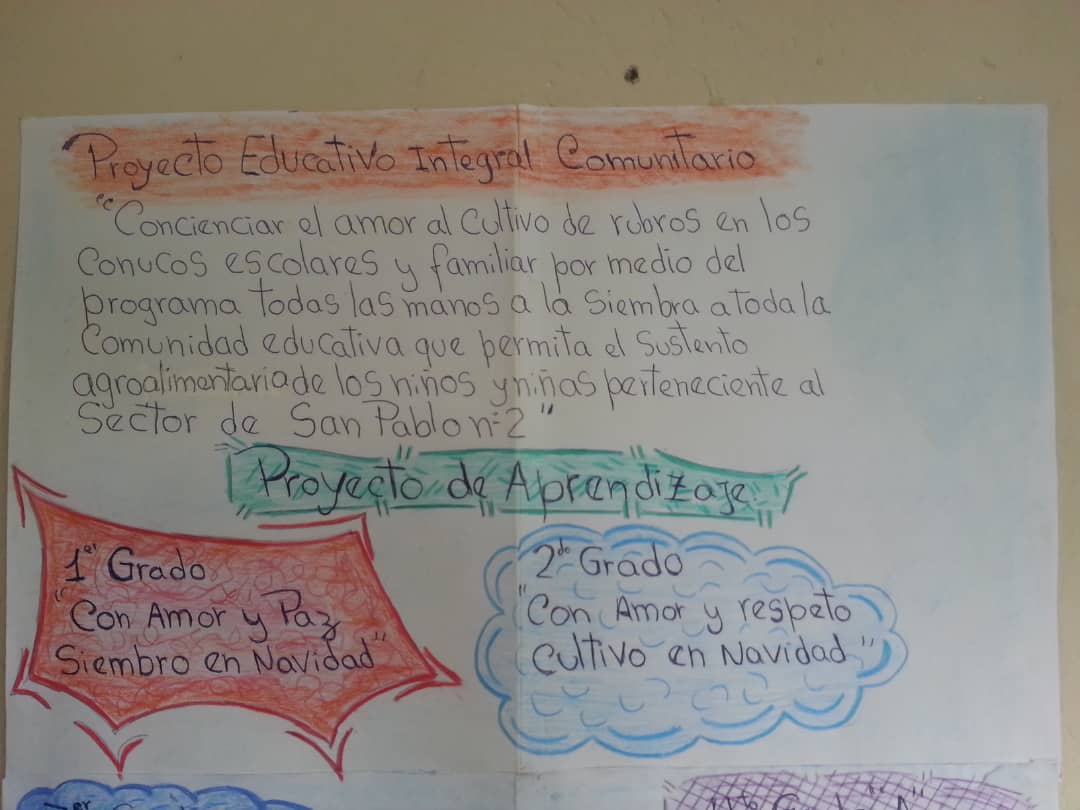 Proyecto Educativo Integral Comunitario
"Concienciar el amor al cultivo de rubros en los
Conucos escolares y familiar por medio del
programa todas las manos a la siembra a toda la
Comunidad educativa que permita el sustento
agroalimentaria de los niños y niñas perteneciente al
Sector de San Pablo nº2"
Proyecto de Aprendizaje
1er Grado
"Con Amor y Paz
Siembro en Navidad"
2do Grado
"Con Amor y respeto
Cultivo en Navidad"